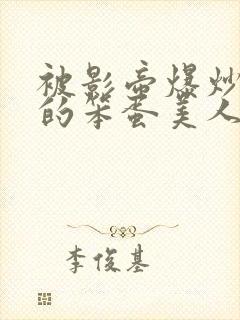 被影帝爆炒
的笨蛋美人
李俊基